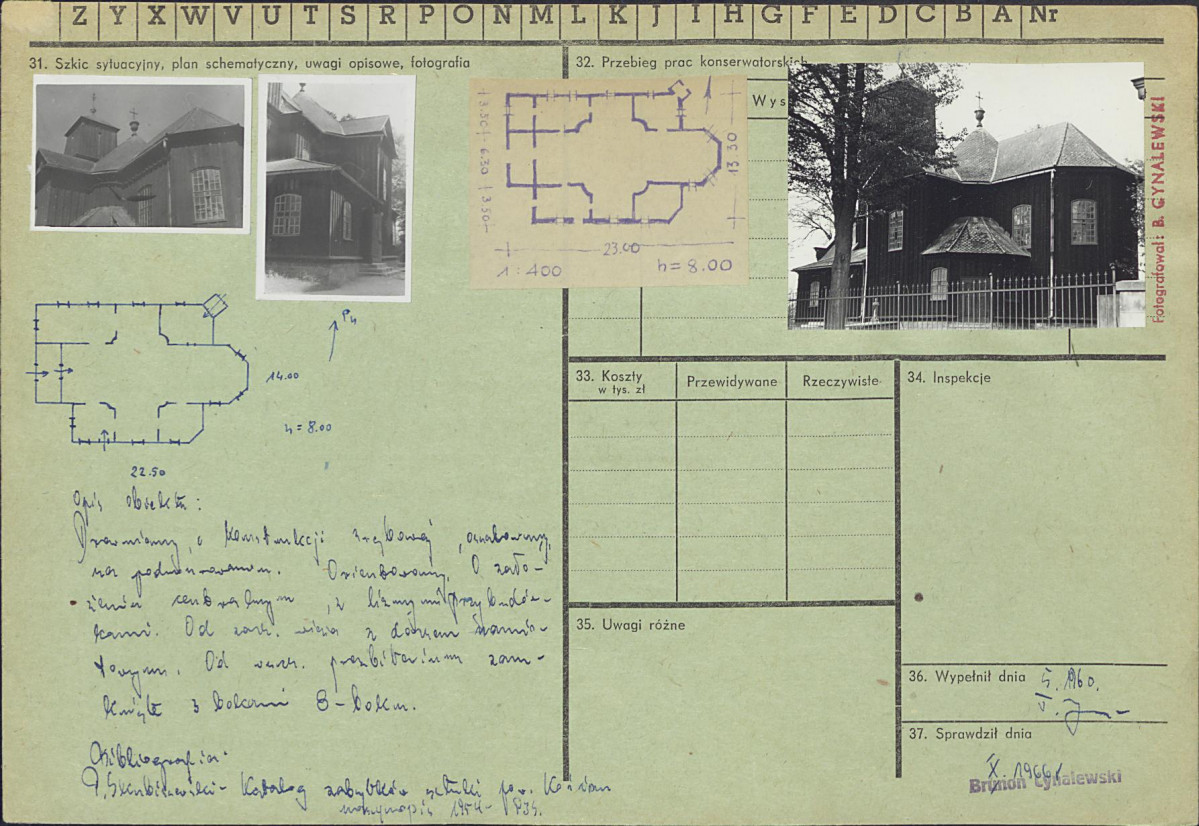 Z Y X W V U T S R P O N M L K J I H G F E D C B A Nr
31. Szkic sytuacyjny, plan schematyczny, uwagi opisowe, fotografia
32. Przebieg prac konserwatorskich
Wys
3.50 6.30 3.50
13 30
23.00
1:400 h=8.00
Fotografował: B. GYNALEWSKI
Pn
14.00
h=8.00
22.50
Opis obiektu:
Drewniany, o konstrukcji zrębowej, oszalowany,
na podmurowaniu. Orientowany. O zało-
żeniu centralnym, z licznymi przybudów-
kami. Od zach. wieża z dachem namio-
towym. Od wsch. prezbiterium zam-
knięte 3 bokami 8-boku.
Bibliografia:
Katalog zabytków sztuki pow.
maszynopis 1954
33. Koszty
w tys. zł
Przewidywane
Rzeczywiste
34. Inspekcje
35. Uwagi różne
36. Wypełnił dnia 5. 1960.
37. Sprawdził dnia
X. 1966 r
Brunon Cynalewski